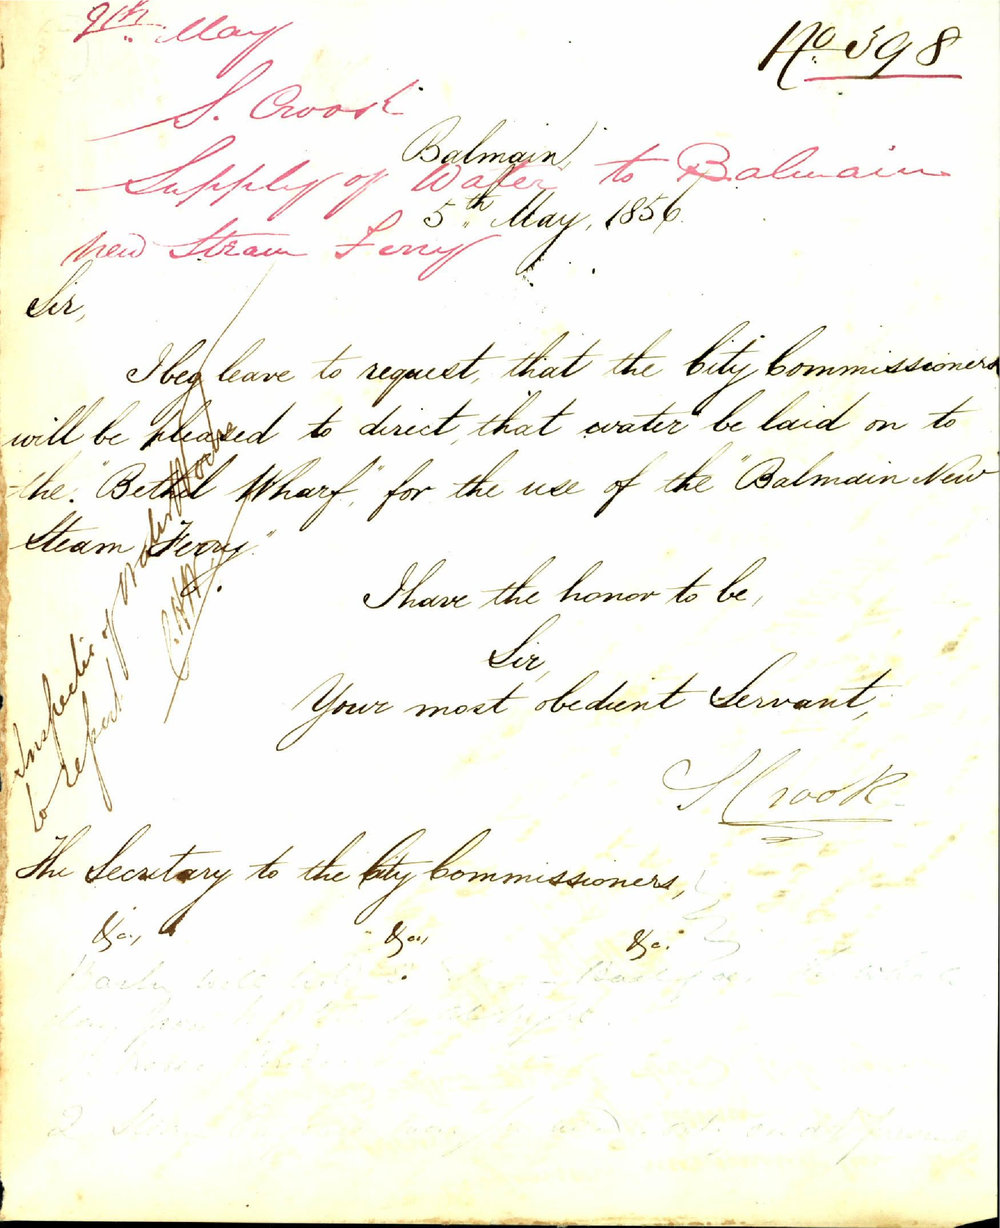 9th May
No. 398
S. Crook
Balmain,
Supply of Water to Balmain
5th May, 1856.
new Steam Ferry
Sir,
I beg leave to request, that the City Commissioners
will be pleased to direct, that water be laid on to
the "Bethel Wharf," for the use of the "Balmain New
Steam Ferry."
I have the honor to be,
Sir,
Your most obedient Servant,
S Crook
Inspector of Water Works
to report
The Secretary to the City Commissioners,
&c., &c., &c.